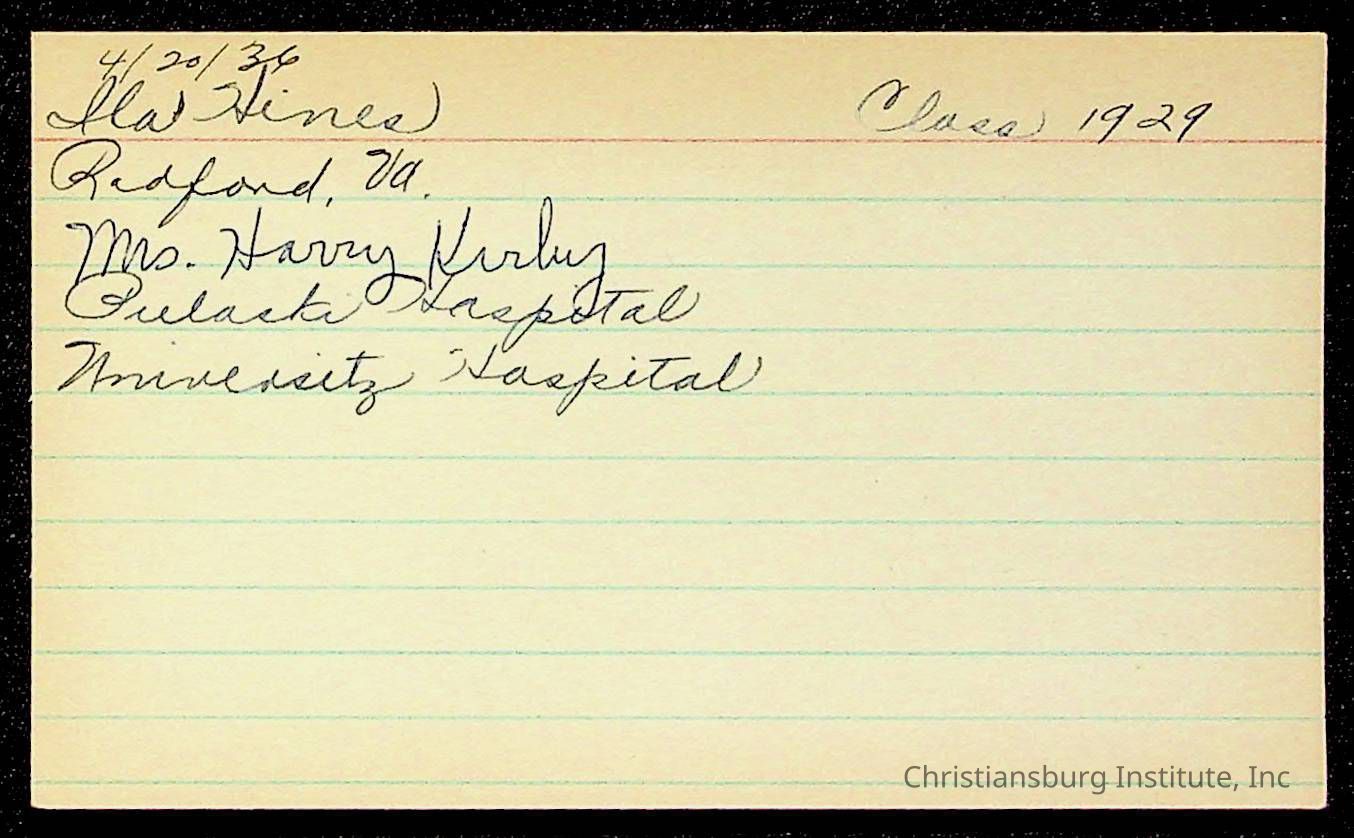 4/20/36
Ila Hines
Class 1929
Radford, Va.
Mrs. Harry Kirby
Pulaski Hospital
University Hospital
Christiansburg Institute, Inc